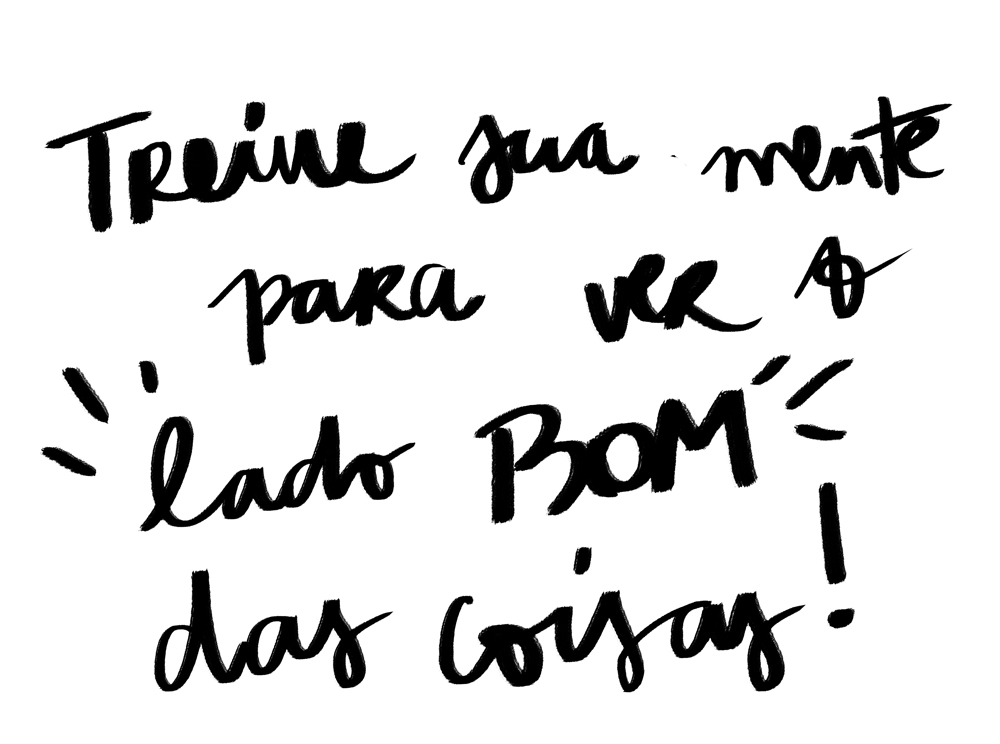 Treine sua mente
para ver o
lado BOM
das coisas!